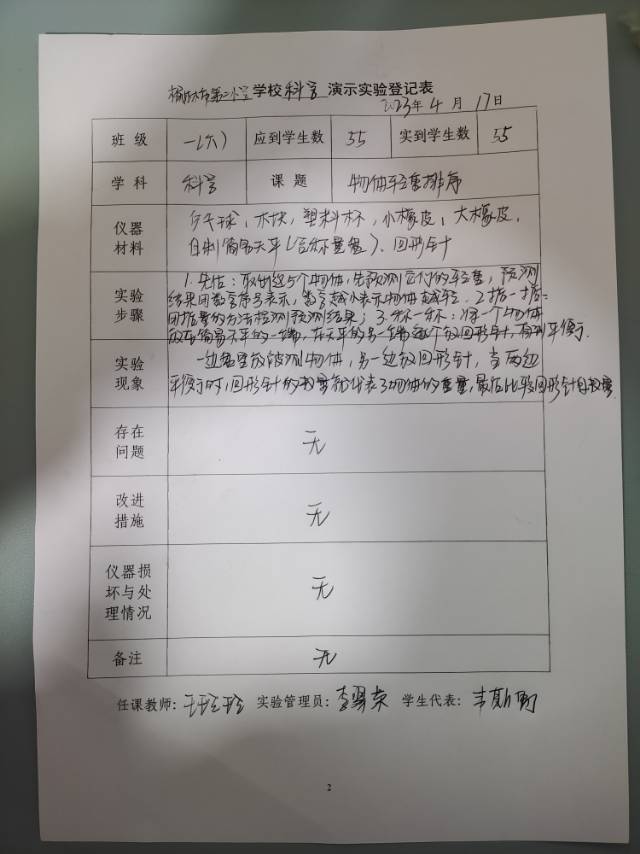 第二小学学校科学演示实验登记表
2023年4月17日
班级 一(六) 应到学生数 55 实到学生数 55
学科 科学 课题 物体轻重排序
仪器材料 乒乓球,木块,塑料杯,小橡皮,大橡皮,
自制简易天平(含杯量器)、回形针
实验步骤 1.先估:取出这5个物体,先预测它们的轻重,预测
结果用数字序号表示,数字越小表示物体越轻。2.掂一掂:
用掂量的方法检测预测结果;3.称一称:将一个物体
放在简易天平的一端,在天平的另一端逐个放回形针,直到平衡。
实验现象 一边盒里放被测物体,另一边放回形针,当两边
平衡时,回形针的数量就代表了物体的重量,最后比较回形针的数量
存在问题 无
改进措施 无
仪器损坏与处理情况 无
备注 无
任课教师: 王珍珍 实验管理员: 李翠荣 学生代表:
2